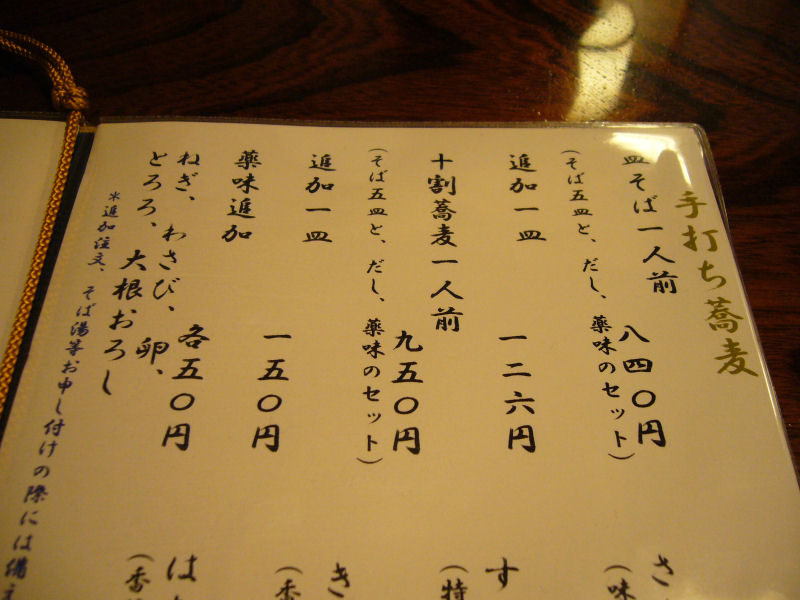 手打ち蕎麦
皿そば一人前 八四〇円
（そば五皿と、だし、薬味のセット）
追加一皿 一二六円
十割蕎麦一人前 九五〇円
（そば五皿と、だし、薬味のセット）
追加一皿 一五〇円
薬味追加
ねぎ、わさび、卵、 各五〇円
とろろ、大根おろし
＊追加注文、そば湯等お申し付けの際には備え
さ
（味
す
（特
き
（香
は
（香